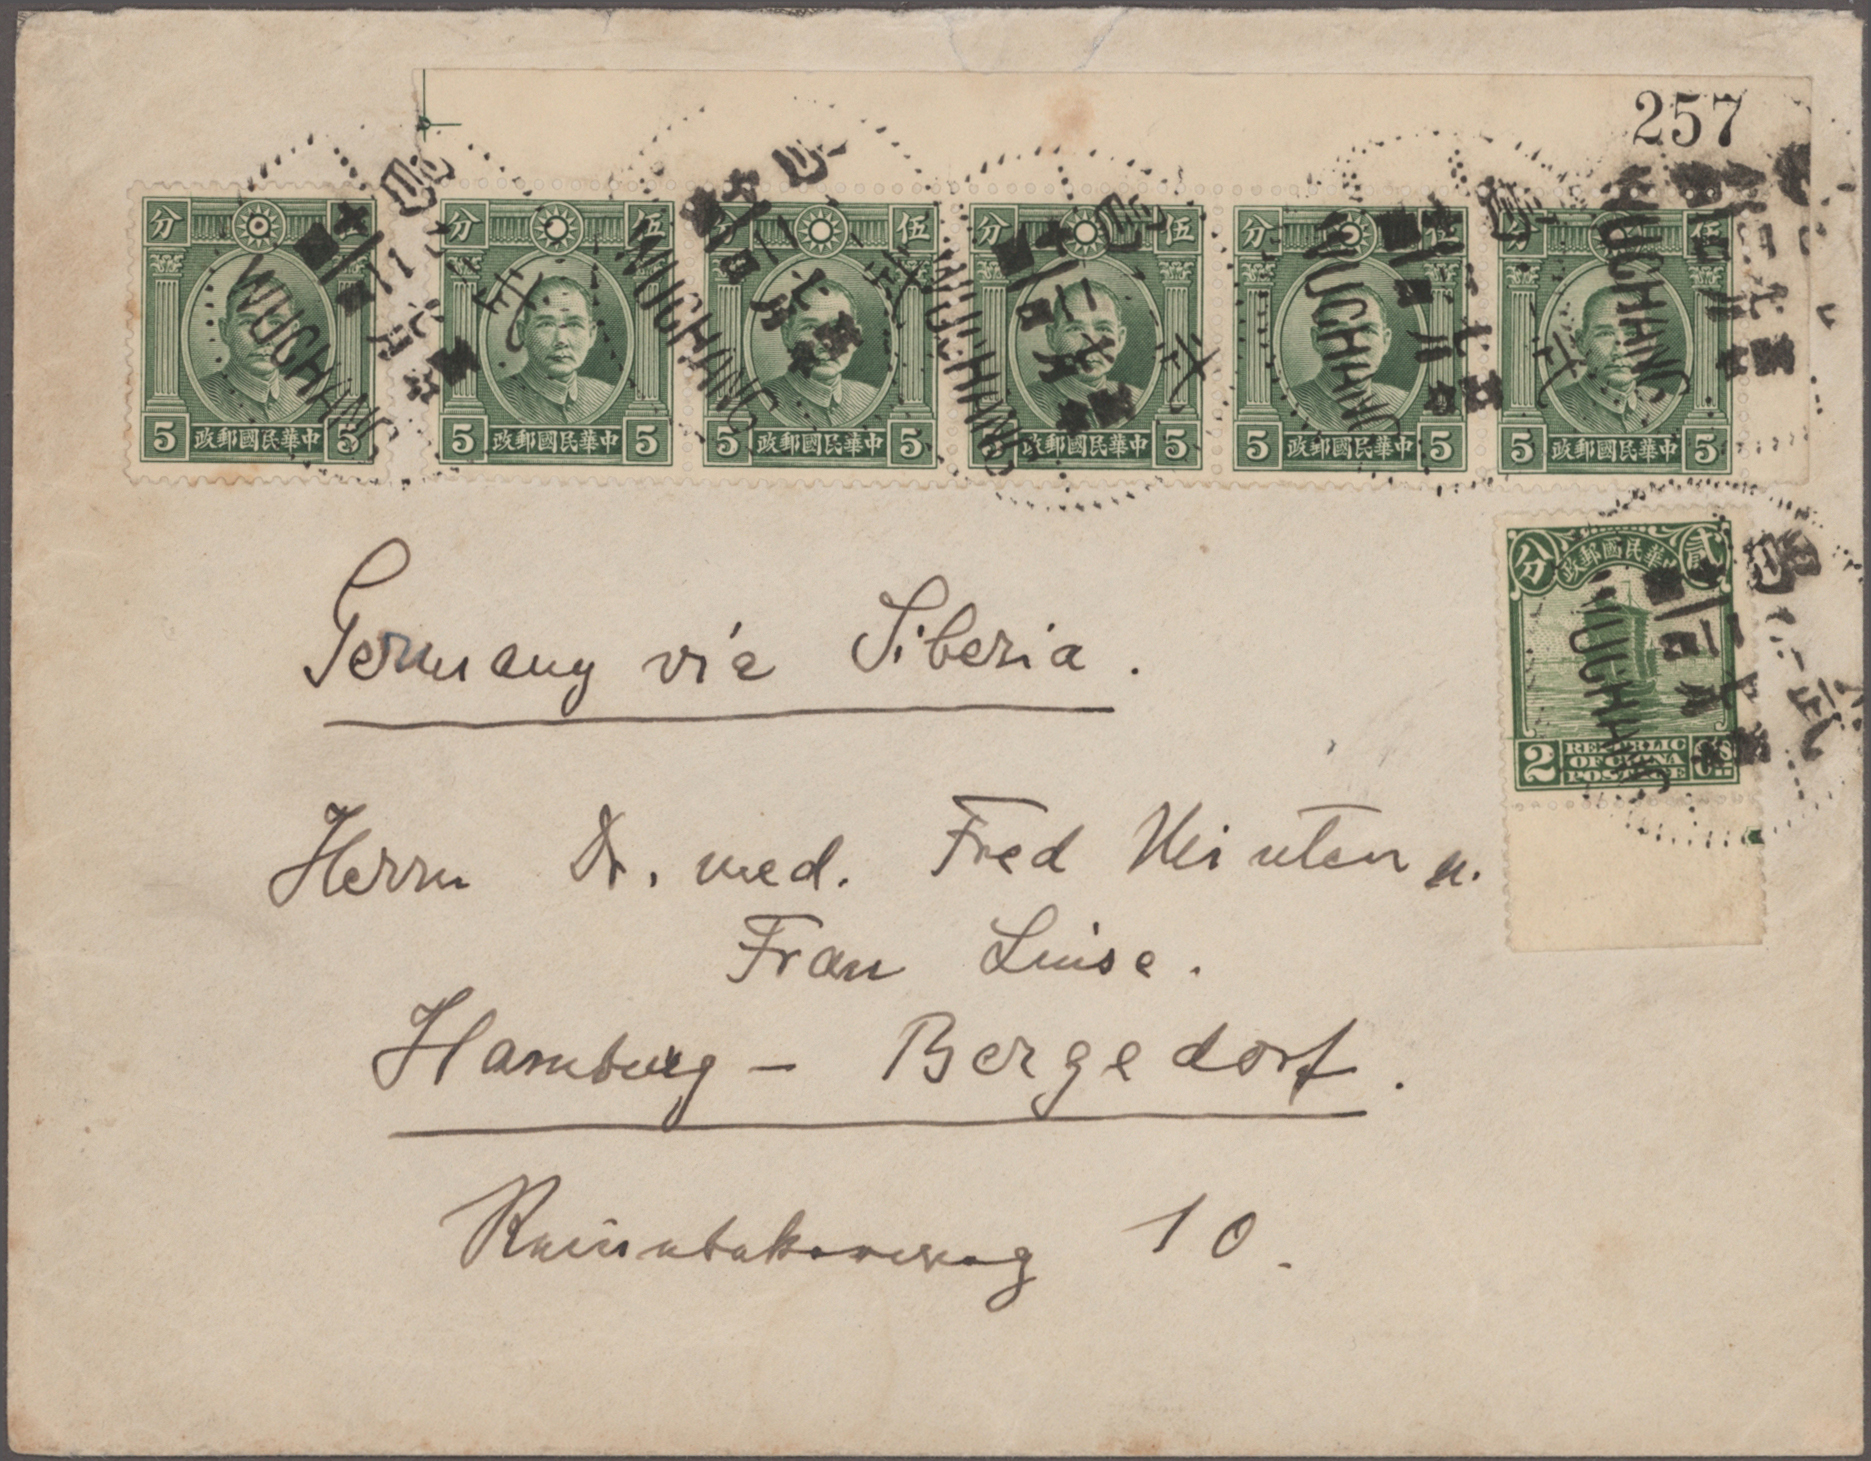 257
分 伍
分 伍
分 伍
分 伍
5 政郵國民華中 5
5 政郵國民華中 5
5 政郵國民華中 5
5 政郵國民華中 5
5 政郵國民華中 5
5 政郵國民華中 5
WUCHANG
WUCHANG
WUCHANG
WUCHANG
WUCHANG
分 貳
2 REPUBLIC OF CHINA POSTAGE CTS
WUCHANG
Germany via Siberia.
Herrn Dr. med. Fred u.
Frau Luise.
Hamburg - Bergedorf.
10.